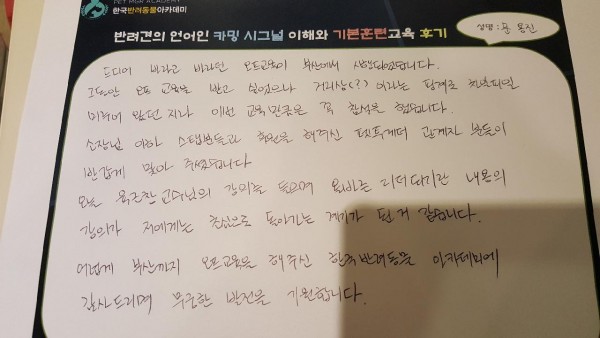 PET MBA ACADEMY
한국반려동물아카데미
반려견의 언어인 카밍 시그널 이해와 기본훈련교육 후기
성명 : 문 용진
드디어 바라고 바라던 오프교육이 부산에서 시행되었습니다.
그동안 오프 교육을 받고 싶었으나 거리상(?) 이라는 핑계로 차일피일
미루어 왔던 지라 이번 교육만큼은 꼭 참석을 했습니다.
소장님 이하 스탭분들과 후원을 해주신 펫투게더 관계자 분들이
반갑게 맞아 주셨습니다
오늘 옥근찬 교수님의 강의를 들으며 올바른 리더되기란 내용의
강의가 저에게는 초심으로 돌아가는 계기가 된 거 같습니다.
어렵게 부산까지 오프교육을 해주신 한국반려동물 아카데미에
감사드리며 무궁한 발전을 기원합니다.